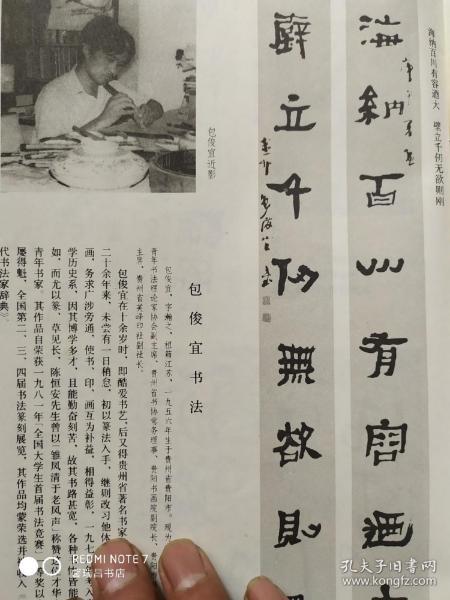 海纳百川有容迺大 壁立千仞无欲则刚
海纳百川有容迺大
壁立千仞無欲則
包俊宜近影
包俊宜书法
包俊宜，字瀚之，祖籍江苏，一九五六年生于贵州省贵阳市。现为
青年书法理论家协会副主席、贵州省书协常务理事、贵阳书画院副院长、贵
主席、贵州省英峰印社副社长。
包俊宜在十余岁时，即酷爱书艺，后又得贵州省著名书家
二十余年来，未尝有一日稍怠，初以篆法入手，继则改习他体
画，务求广涉旁通，使书、印、画互为补益，相得益彰，一九七
学历史系，因其博学多才，且能勤奋刻苦，故其书路甚宽，各种
如，而尤以篆、草见长，陈恒安先生曾以「雏凤清于老凤声」称赞
青年书家，其作品自荣获一九八一年「全国大学生首届书法竞赛」
屡得魁，全国第二、三、四届书法篆刻展览，其作品均蒙荣选并收入
代书法家辞典》。
REDMI NOTE 7
孔夫子旧书网
kongfz.com